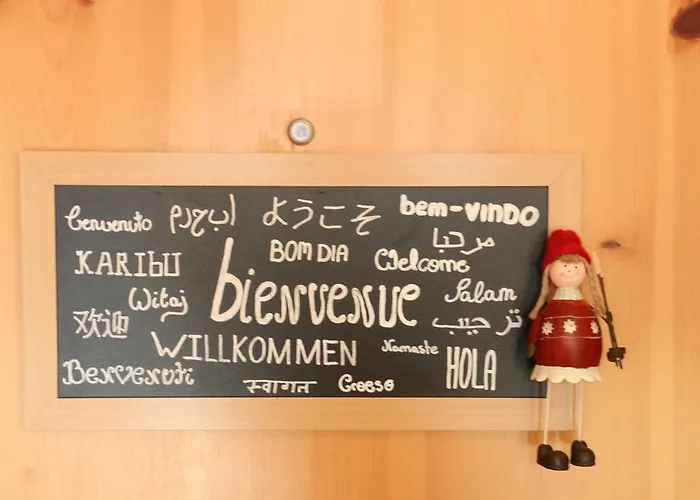 Benvenuto ようこそ bem-vinDO
KARIBU BOM DIA Welcome مرحبا
Witaj bienvenue Salam
欢迎 ترحيب
WILLKOMMEN Namaste HOLA
Benvenuti स्वागत Croeso